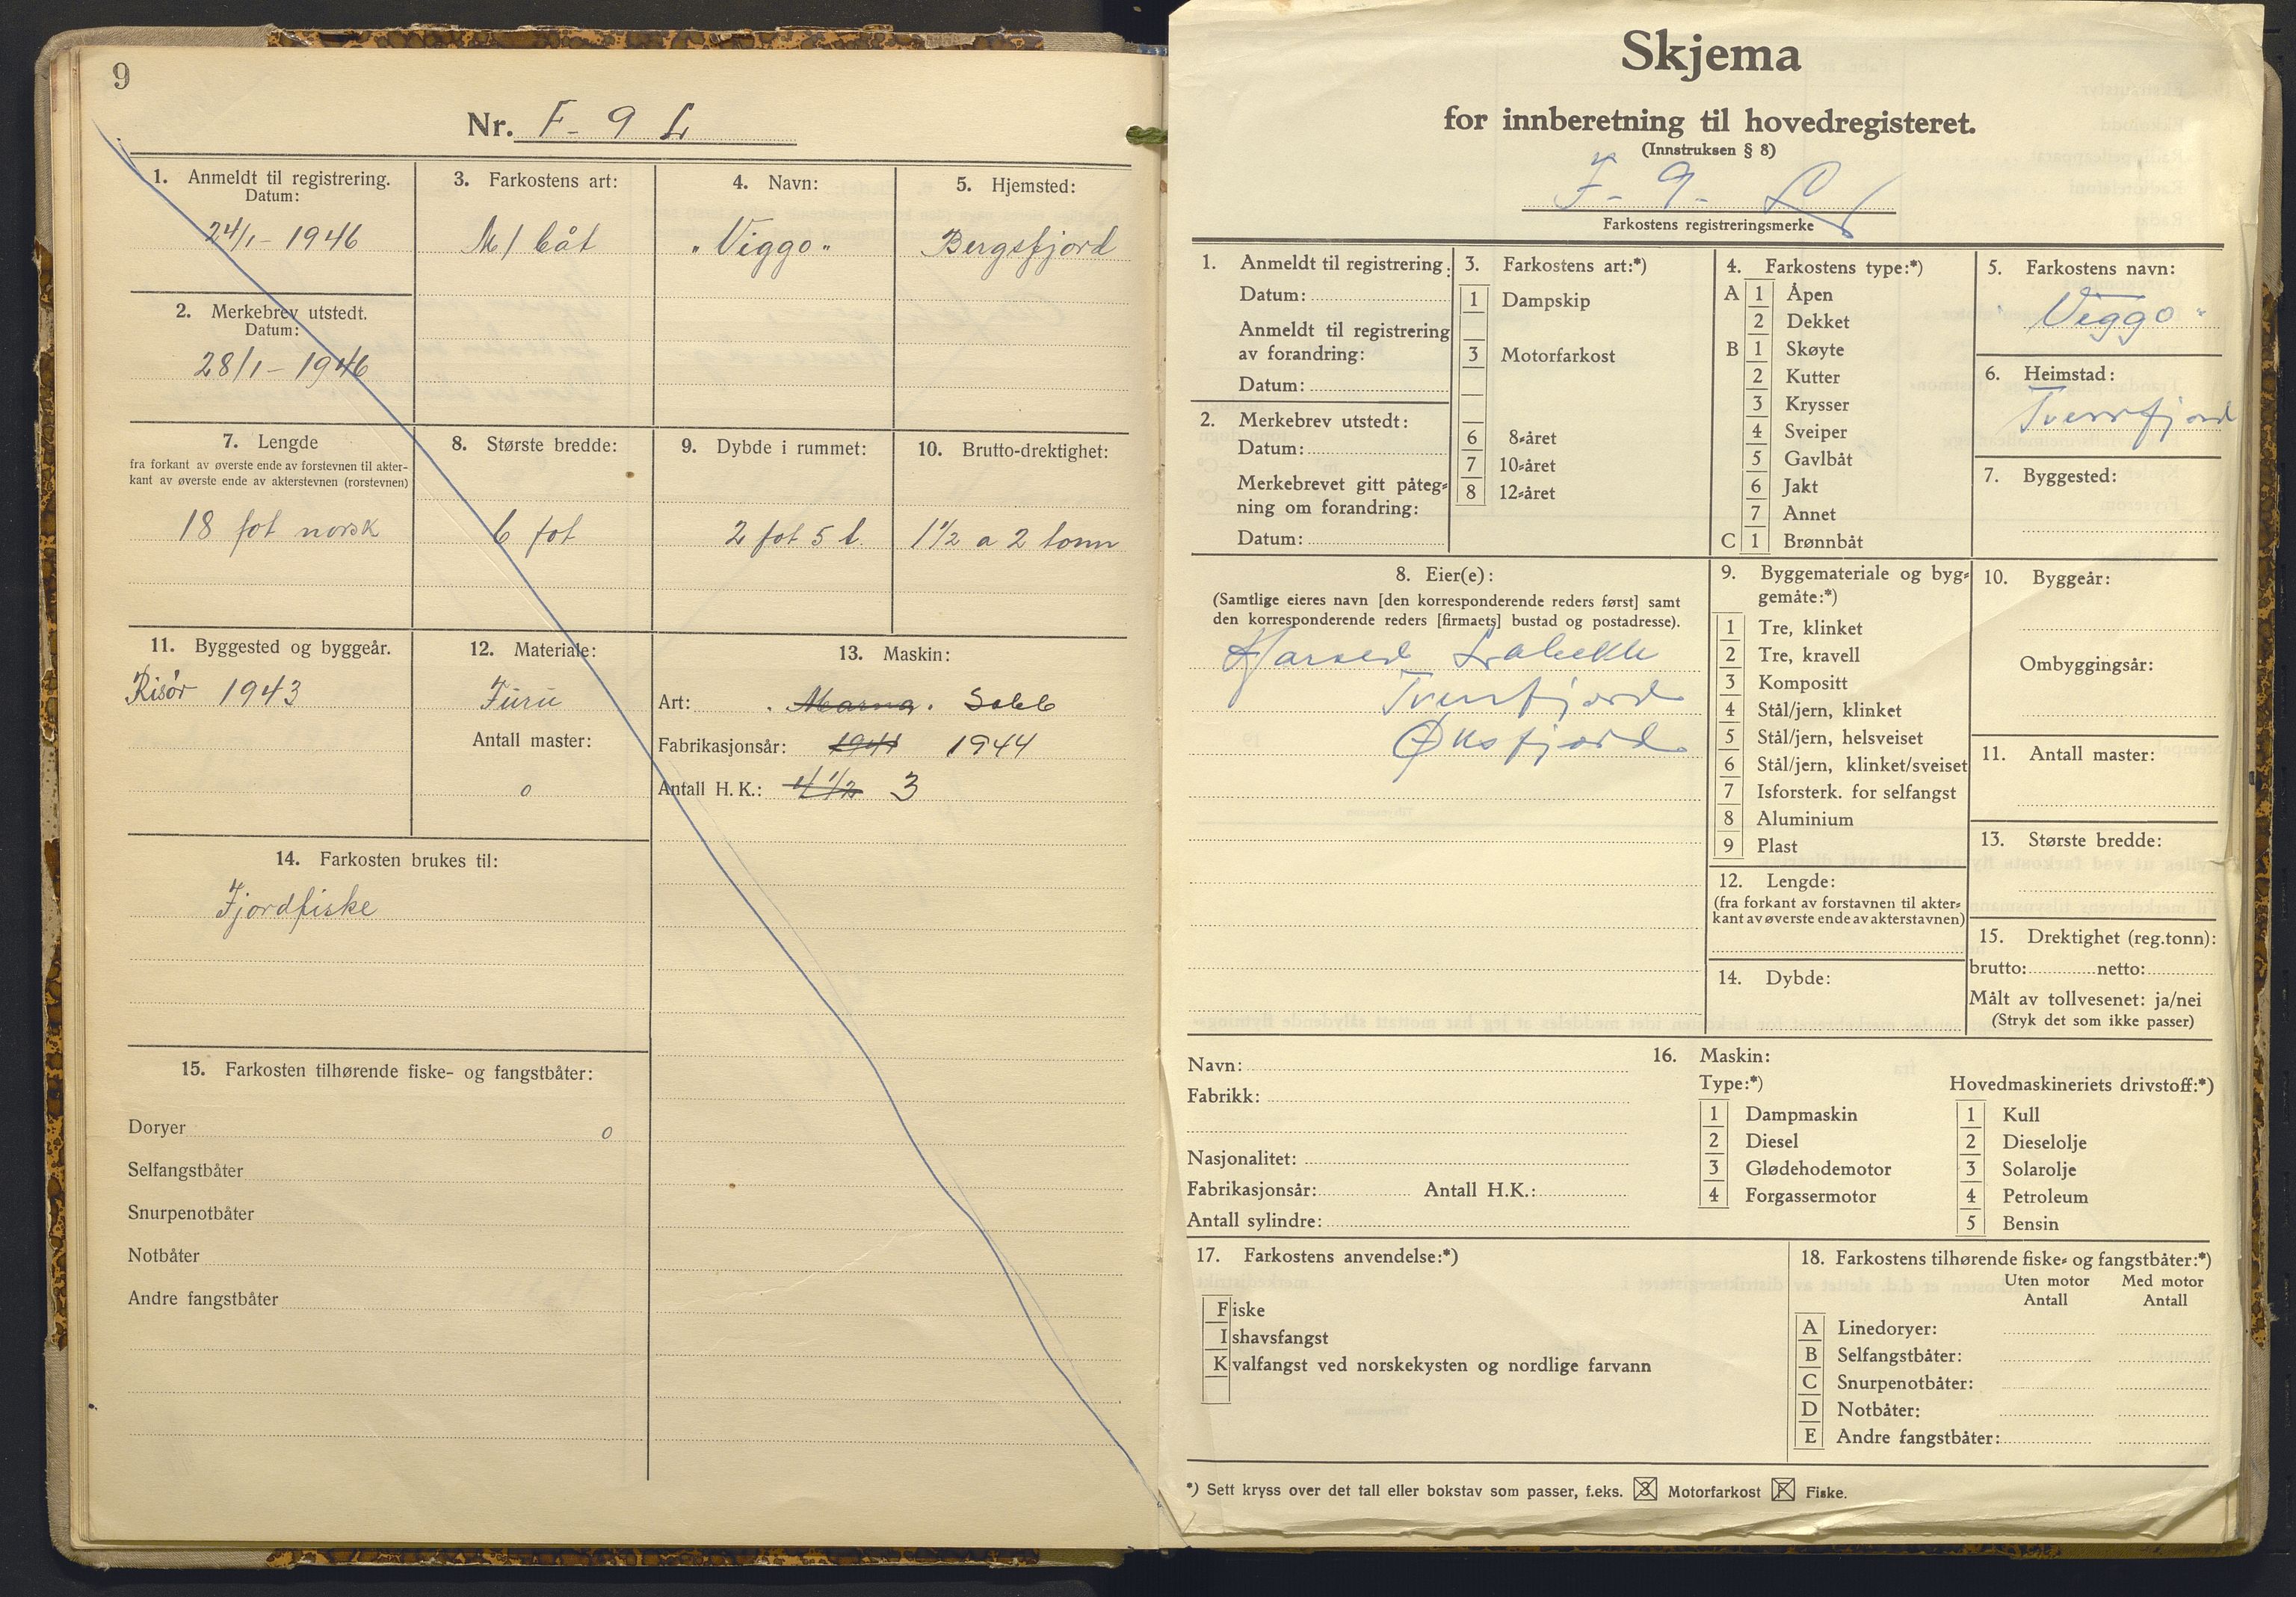 9
Nr. F- 9 L
1. Anmeldt til registrering.
Datum:
24/1 - 1946
2. Merkebrev utstedt.
Datum:
28/1 - 1946
3. Farkostens art:
M/ båt
4. Navn:
"Viggo"
5. Hjemsted:
Bergsfjord
7. Lengde
fra forkant av øverste ende av forstevnen til akter-
kant av øverste ende av akterstevnen (rorstevnen)
18 fot norsk
8. Største bredde:
6 fot
9. Dybde i rummet:
2 fot 5 t.
10. Brutto-drektighet:
1½ a 2 tonn
11. Byggested og byggeår.
Risør 1943
12. Materiale:
Furu
Antall master:
0
13. Maskin:
Art: Marna. Sabb
Fabrikasjonsår: 1941 1944
Antall H. K.: 4 1/2 3
14. Farkosten brukes til:
Fjordfiske
15. Farkosten tilhørende fiske- og fangstbåter:
Doryer 0
Selfangstbåter
Snurpenotbåter
Notbåter
Andre fangstbåter
Skjema
for innberetning til hovedregisteret.
(Innstruksen § 8)
F- 9- L
Farkostens registreringsmerke
1. Anmeldt til registrering:
Datum:
Anmeldt til registrering
av forandring:
Datum:
2. Merkebrev utstedt:
Datum:
Merkebrevet gitt påteg-
ning om forandring:
Datum:
3. Farkostens art:*)
1 Dampskip
3 Motorfarkost
6 8-året
7 10-året
8 12-året
4. Farkostens type:*)
A 1 Åpen
2 Dekket
B 1 Skøyte
2 Kutter
3 Krysser
4 Sveiper
5 Gavlbåt
6 Jakt
7 Annet
C 1 Brønnbåt
5. Farkostens navn:
"Viggo"
6. Heimstad:
Tverrfjord
7. Byggested:
8. Eier(e):
(Samtlige eieres navn [den korresponderende reders først] samt
den korresponderende reders [firmaets] bustad og postadresse).
Tverrfjord
Øksfjord
9. Byggemateriale og byg-
gemåte:*)
1 Tre, klinket
2 Tre, kravell
3 Kompositt
4 Stål/jern, klinket
5 Stål/jern, helsveiset
6 Stål/jern, klinket/sveiset
7 Isforsterk. for selfangst
8 Aluminium
9 Plast
10. Byggeår:
Ombyggingsår:
11. Antall master:
12. Lengde:
(fra forkant av forstavnen til akter-
kant av øverste ende av akterstavnen)
13. Største bredde:
14. Dybde:
15. Drektighet (reg.tonn):
brutto: netto:
Målt av tollvesenet: ja/nei
(Stryk det som ikke passer)
16. Maskin:
Navn:
Fabrikk:
Nasjonalitet:
Fabrikasjonsår: Antall H.K.:
Antall sylindre:
Type:*)
1 Dampmaskin
2 Diesel
3 Glødehodemotor
4 Forgassermotor
Hovedmaskineriets drivstoff:*)
1 Kull
2 Dieselolje
3 Solarolje
4 Petroleum
5 Bensin
17. Farkostens anvendelse:*)
Fiske
Ishavsfangst
Kvalfangst ved norskekysten og nordlige farvann
18. Farkostens tilhørende fiske- og fangstbåter:*)
Uten motor Med motor
Antall Antall
A Linedoryer:
B Selfangstbåter:
C Snurpenotbåter:
D Notbåter:
E Andre fangstbåter:
*) Sett kryss over det tall eller bokstav som passer, f.eks. 3 Motorfarkost F Fiske.